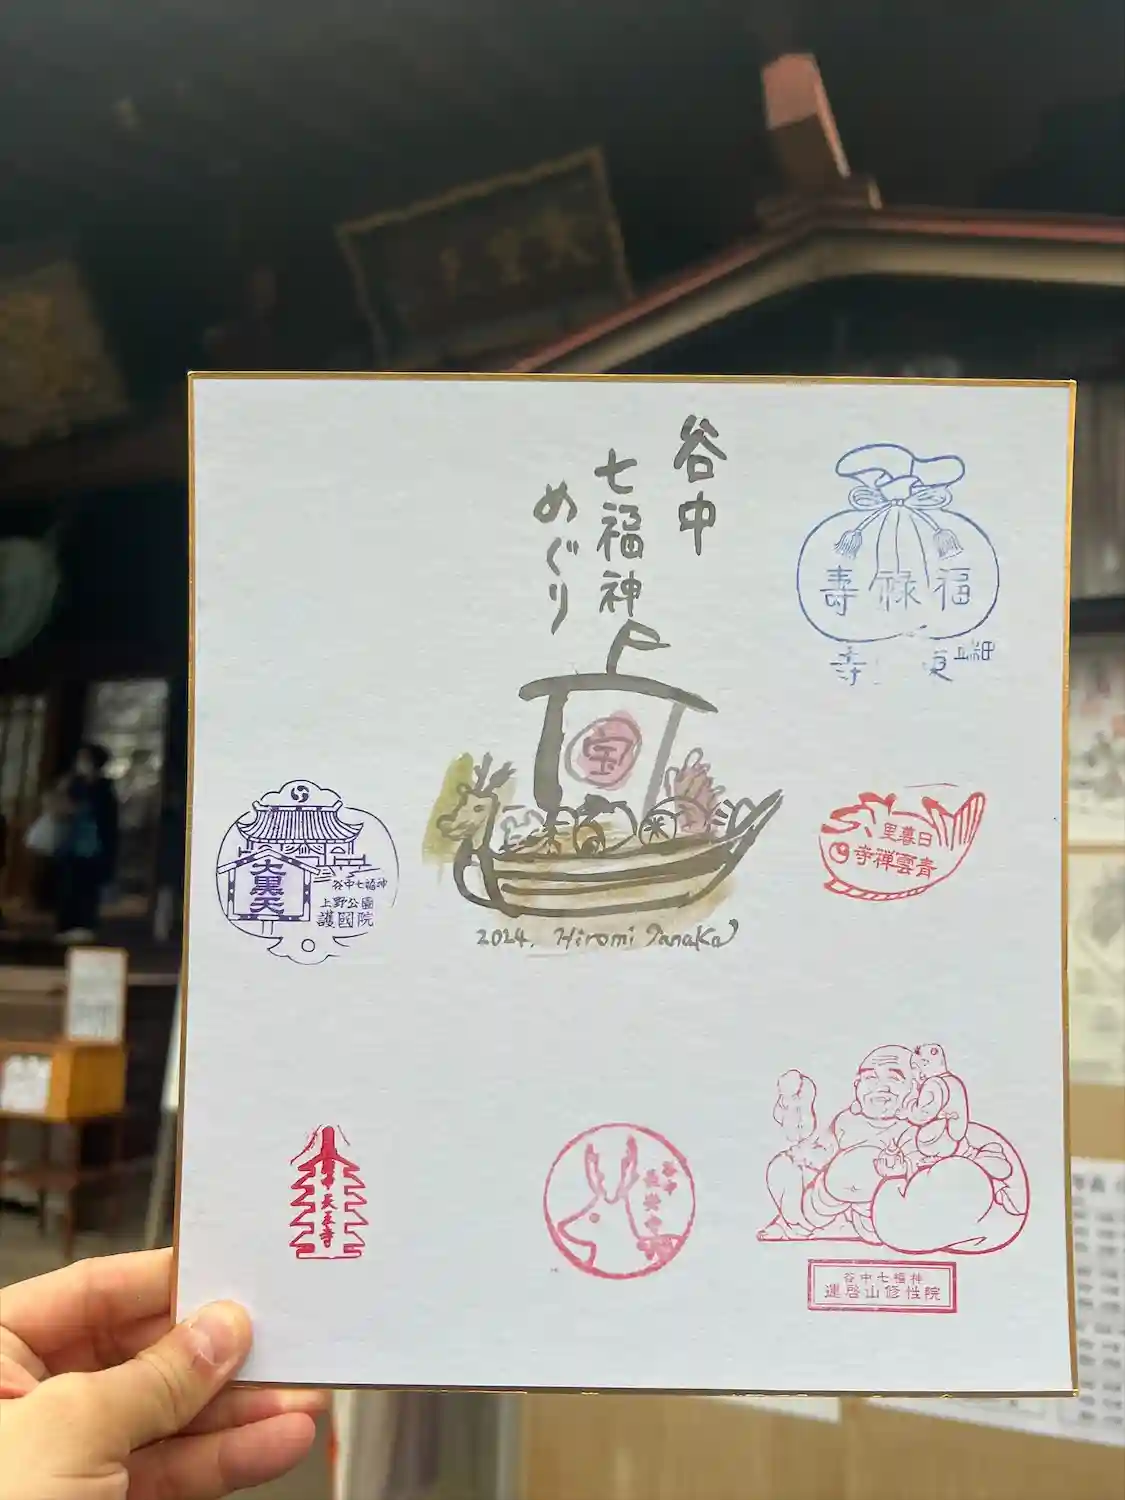 谷中
七福神
めぐり
宝
2024. Hiromi Tanaka
福禄寿
田端
東
寺
日暮里
青雲禅寺
大黒天
谷中七福神
上野公園
護國院
天王寺
谷中
長安寺
谷中七福神
運啓山修性院